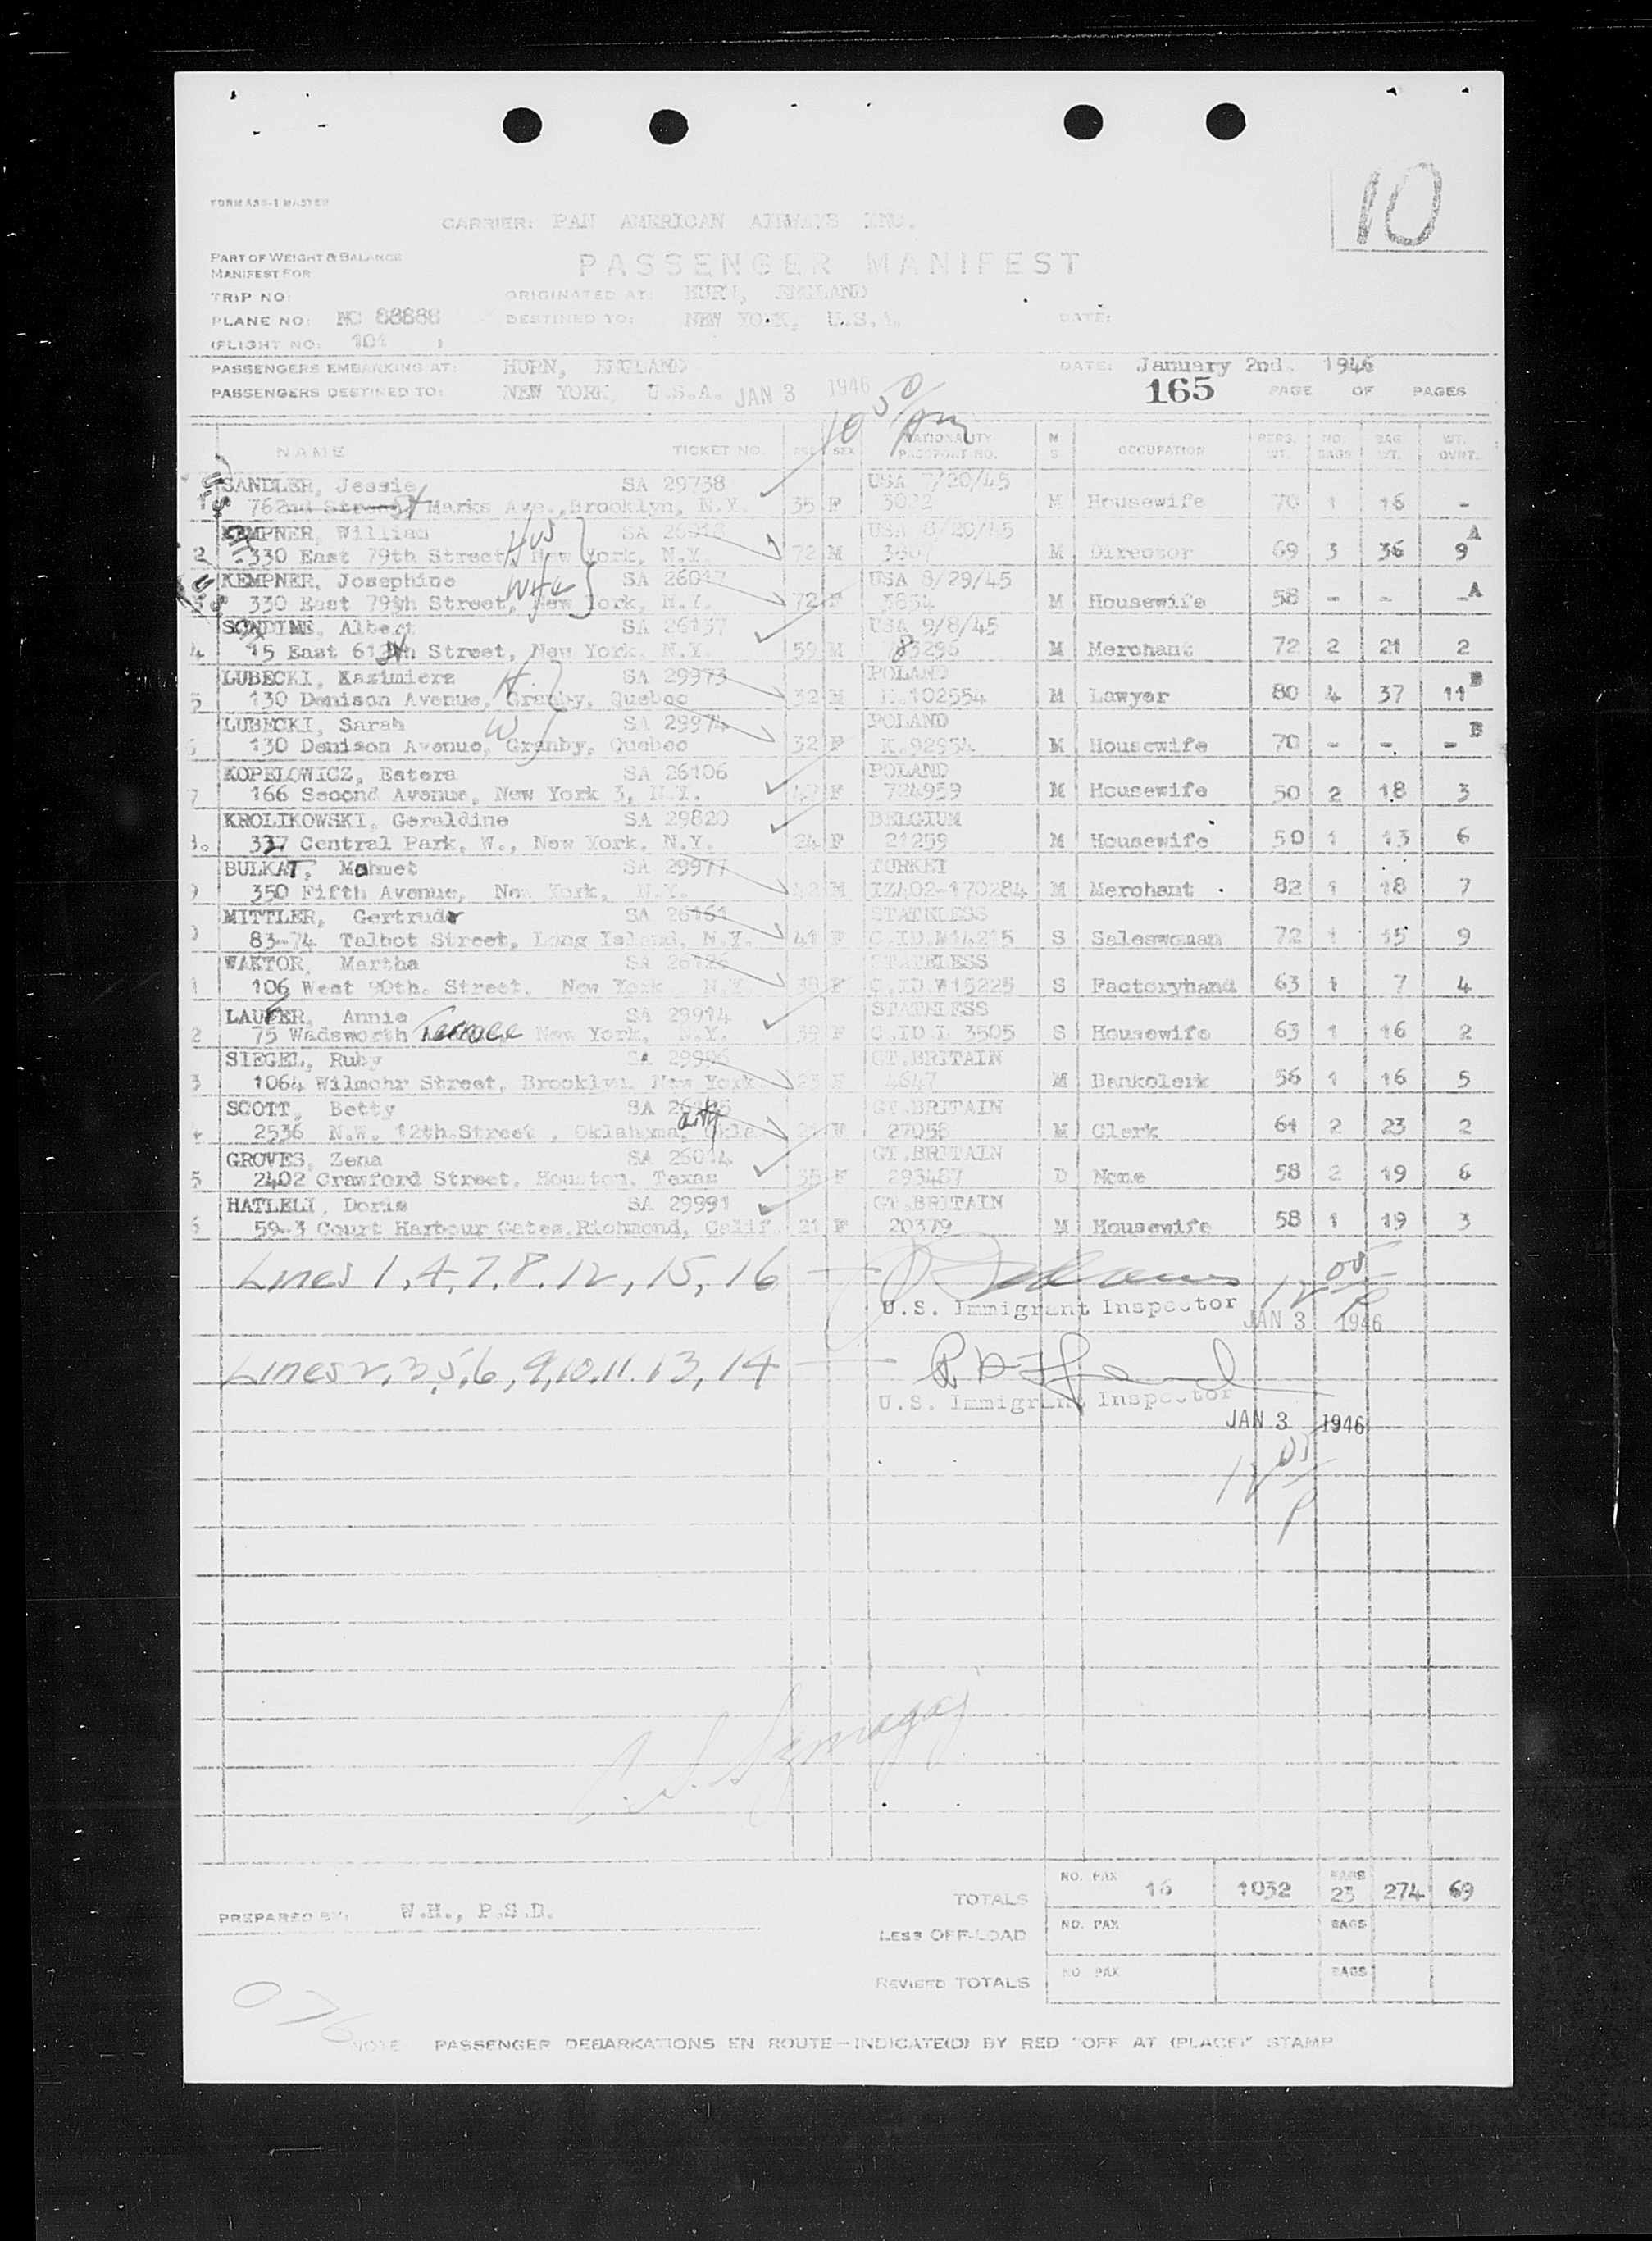 10
FORM ASC-1 MASTER
CARRIER: PAN AMERICAN AIRWAYS INC.
PART OF WEIGHT & BALANCE
MANIFEST FOR
PASSENGER MANIFEST
TRIP NO:
ORIGINATED AT: HURN, ENGLAND
PLANE NO: NC 88888
DESTINED TO: NEW YORK, U.S.A.
DATE:
(FLIGHT NO: 101 )
PASSENGERS EMBARKING AT: HURN, ENGLAND
DATE: January 2nd. 1946
PASSENGERS DESTINED TO: NEW YORK, U.S.A. JAN 3 1946
165 PAGE OF PAGES
10 50/ Am
NAME TICKET NO. AGE SEX NATIONALITY PASSPORT NO. M S OCCUPATION PERS. WT. NO. BAGS BAG WT. WT. OVRT.
SANDLER, Jessie SA 29738 USA 7/20/45
1 762nd Street Marks Ave., Brooklyn, N.Y. 35 F M Housewife 70 1 16 -
KEMPNER, William Hus USA 8/20/45 A
2 330 East 79th Street, New York, N.Y. 72 M M Director 69 3 36 9
KEMPNER, Josephine Wife SA 26017 USA 8/29/45 A
3 330 East 79th Street, New York, N.Y. 72 F 3834 M Housewife 58 - - -
SONDIME, Albert SA 26137 USA 9/8/45
4 15 East 61 Street, New York, N.Y. 59 M M Merchant 72 2 21 2
LUBECKI, Kazimierz H. SA 29973 POLAND B
5 130 Denison Avenue, Granby, Quebec 32 M 102554 M Lawyer 80 4 37 11
LUBECKI, Sarah W SA 29974 POLAND B
130 Denison Avenue, Granby, Quebec 32 F K.92954 M Housewife 70 - - -
KOPELOWICZ, Estera SA 26106 POLAND
7 166 Second Avenue, New York 3, N.Y. F 724959 M Housewife 50 2 18 3
KROLIKOWSKI, Geraldine SA 29820 BELGIUM
337 Central Park, W., New York, N.Y. 24 F 21259 M Housewife 50 1 13 6
BULKAT, Mahmet SA 29977 TURKEY
350 Fifth Avenue, New York, N.Y. M IZA02-170284 M Merchant 82 1 18 7
MITTLER, Gertrude SA 26161 STATELESS
83-74 Talbot Street, Long Island, N.Y. 41 F C.ID.M14215 S Saleswoman 72 1 15 9
WAKTOR, Martha STATELESS
106 West 90th. Street, New York N.Y. F C.ID.W15225 S Factoryhand 63 1 7 4
LAUFER, Annie SA 29914 STATELESS
2 75 Wadsworth Terrace New York, N.Y. F C.ID L 3505 S Housewife 63 1 16 2
SIEGEL, Ruby GT.BRITAIN
3 1064 Wilmohr Street, Brooklyn, New York 23 F M Bankclerk 56 1 16 5
SCOTT, Betty GT.BRITAIN
2536 N.W. 12th.Street, Oklahoma, city Okla. F 27058 M Clerk 61 2 23 2
GROVES, Zena SA 26014 GT.BRITAIN
5 2402 Crawford Street, Houston, Texas 35 F 293487 D None 58 2 19 6
HATLELI, Doris SA 29991 GT.BRITAIN
59-3 Court Harbour Gates, Richmond, Calif. 21 F 20379 M Housewife 58 1 19 3
Lines 1, 4, 7, 8, 12, 15, 16 12 05/P
U.S. Immigrant Inspector
JAN 3 1946
Lines 2, 3, 5, 6, 9, 10, 11, 13, 14
U.S. Immigrant Inspector
JAN 3 1946
12 05/P
TOTALS NO. PAX 16 1032 BAGS 23 274 69
PREPARED BY: W.H., P.S.D.
LESS OFF-LOAD NO. PAX BAGS
REVISED TOTALS NO PAX BAGS
076
NOTE PASSENGER DEBARKATIONS EN ROUTE—INDICATE(D) BY RED "OFF AT (PLACE)" STAMP